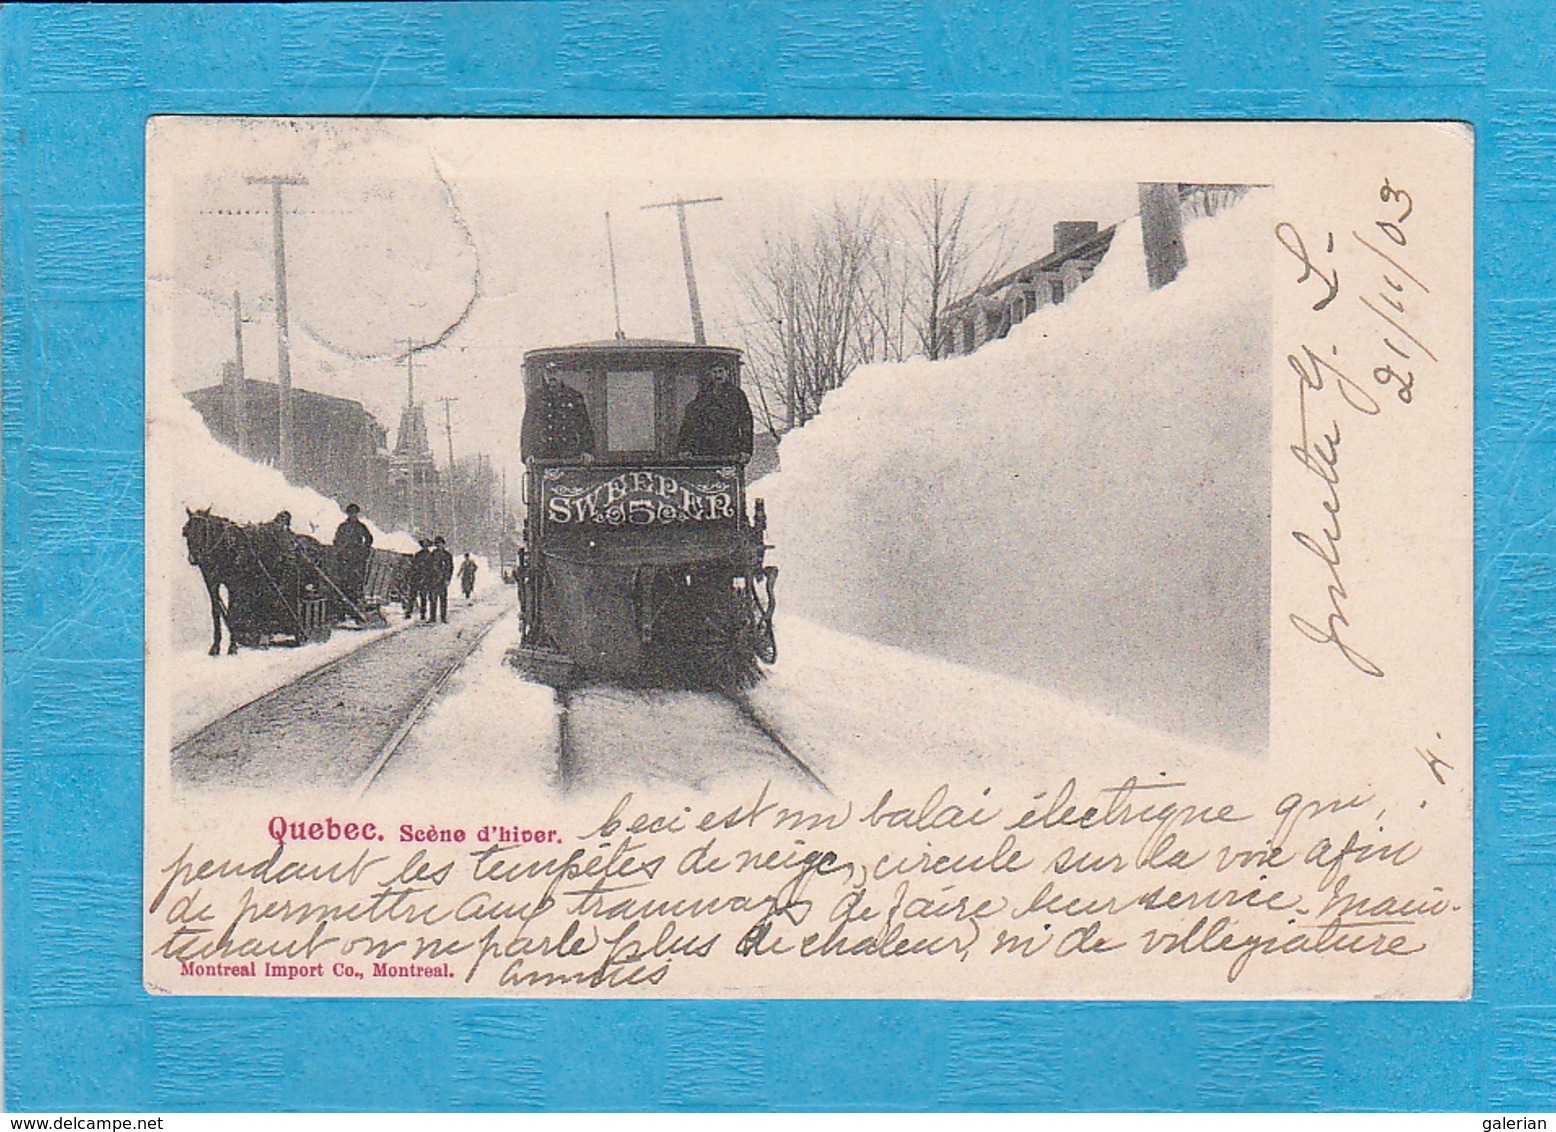 SWEEPER
5
Quebec. Scène d'hiver.
Ceci est un balai électrique qui,
pendant les tempêtes de neige, circule sur la voie afin
de permettre aux tramways de faire leur service. Main-
tenant on ne parle plus de chaleur, ni de villégiature
Montreal Import Co., Montreal.
G. L.
21/11/03
4.
www.delcampe.net
galerian